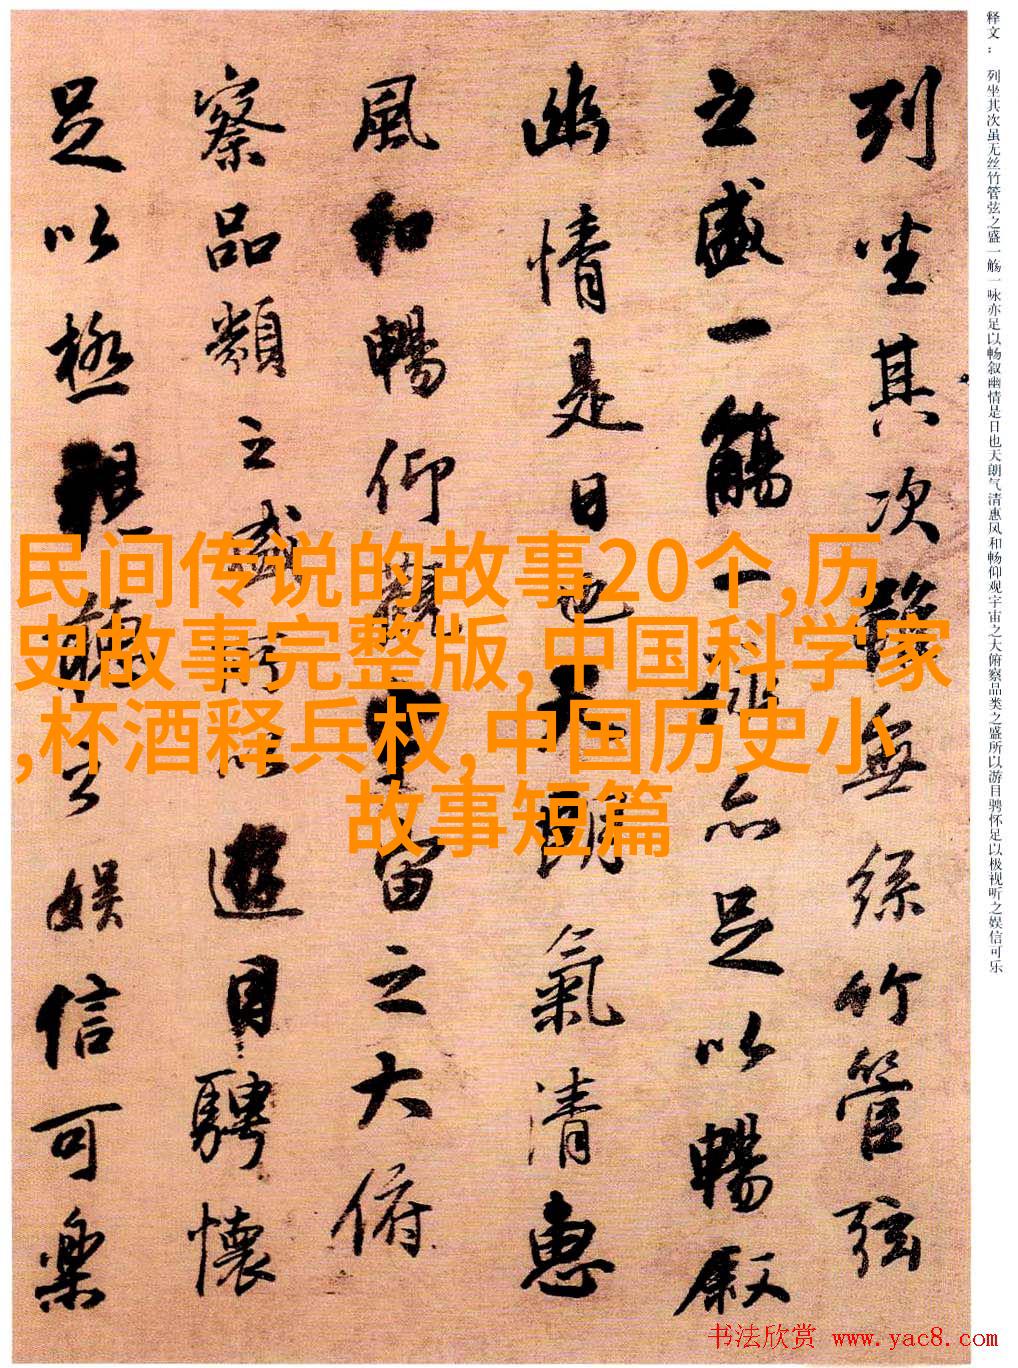 释文： 列坐其次虽无丝竹管弦之盛一觞一咏亦足以畅叙幽情是日也天朗气清惠风和畅仰观宇宙之大俯察品类之盛所以游目骋怀足以极视听之娱信可乐
列坐其次雖無絲竹管弦
之盛一觴一詠亦足以暢叙
幽情是日也天朗氣清惠
風和暢仰觀宇宙之大俯
察品類之盛所以遊目騁懷
足以極視聽之娛信可樂
民间传说的故事20个,历
史故事完整版,中国科学家
,杯酒释兵权,中国历史小
故事短篇
书法欣赏 www.yac8.com